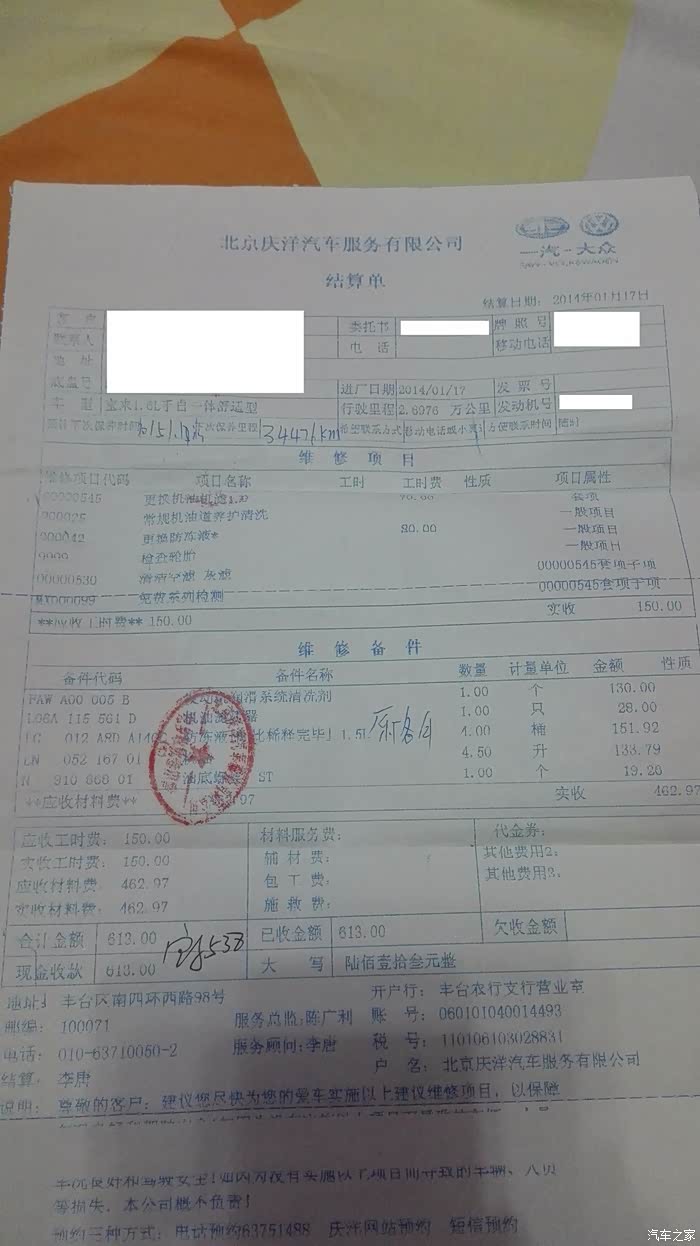 北京庆洋汽车服务有限公司
一汽-大众
结算单
结算日期: 2014年01月17日
委托书 牌照号
联系人 电 话 移动电话
地 址
底盘号 进厂日期 2014/01/17 发票号
车 型 宝来1.6L手自一体舒适型 行驶里程 2.6976 万公里 发动机号
次保养里程 34476km 希望联系方式 方便联系时间
维 修 项 目
维修项目代码 项目名称 工时 工时费 性质 项目属性
00000545 更换机油机滤 70.00 套项
常规机油道养护清洗 一般项目
更换防冻液* 80.00 一般项目
9999 检查轮胎 一般项目
00000530 00000545套项子项
免费系列检测 00000545套项子项
**应收工时费** 150.00 实收 150.00
维 修 备 件
备件代码 备件名称 数量 计量单位 金额 性质
FAW A00 005 B 滑系统清洗剂 1.00 个 130.00
L06A 115 561 D 1.00 只 28.00
012 A8D 1.5L 4.00 桶 151.92
052 167 4.50 升 133.79
N 910 668 01 ST 1.00 个 19.26
**应收材料费** 实收 462.97
应收工时费: 150.00 材料服务费: 代金券:
实收工时费: 150.00 辅 材 费: 其他费用2:
应收材料费: 462.97 包 工 费: 其他费用3:
实收材料费: 462.97 施 救 费:
合计金额 613.00 已收金额 613.00 欠收金额
现金收款 613.00 大 写 陆佰壹拾叁元整
地址: 丰台区南四环西路98号 开户行: 丰台农行支行营业室
邮编: 100071 服务总监:陈广利 账 号: 060101040014493
电话: 010-63710060-2 服务顾问:李唐 税 号: 110106103028831
结算: 李唐 户 名: 北京庆洋汽车服务有限公司
说明: 尊敬的客户: 建议您尽快为您的爱车实施以上建议维修项目, 以保障
等损失, 本公司概不负责!
预约三种方式: 电话预约63751488 庆洋网站预约 短信预约
汽车之家